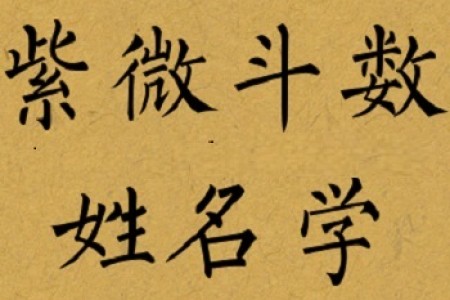 紫微斗数
姓名学